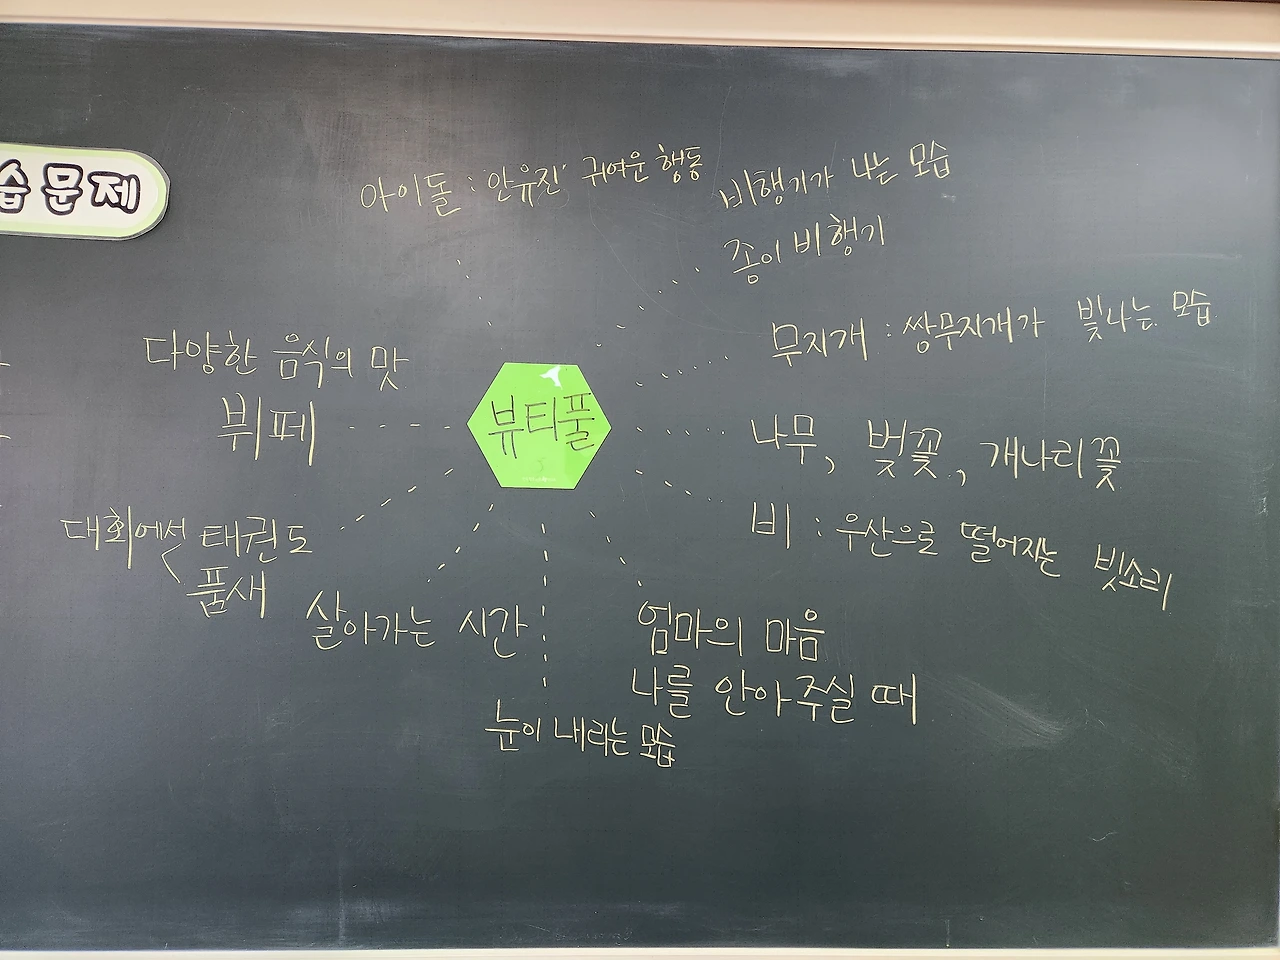 습문제
아이돌 : '안유진' 귀여운 행동
비행기가 나는 모습
종이 비행기
무지개 : 쌍무지개가 빛나는 모습
다양한 음식의 맛
뷔페
뷰티풀
나무, 벚꽃, 개나리꽃
비 : 우산으로 떨어지는 빗소리
대회에서 태권도
품새
살아가는 시간
엄마의 마음
나를 안아주실 때
눈이 내리는 모습